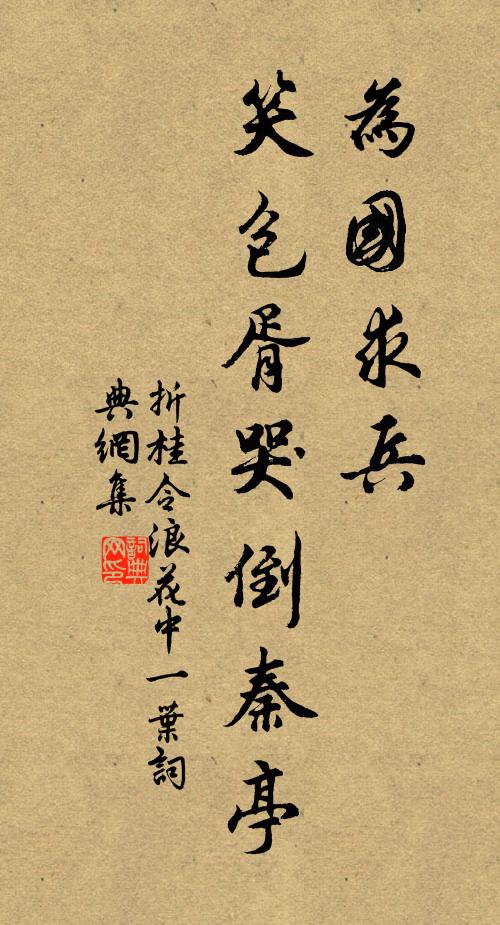 為國求兵
笑包胥哭倒秦亭
折桂令浪花中一葉詞
典網集
詞典
網印